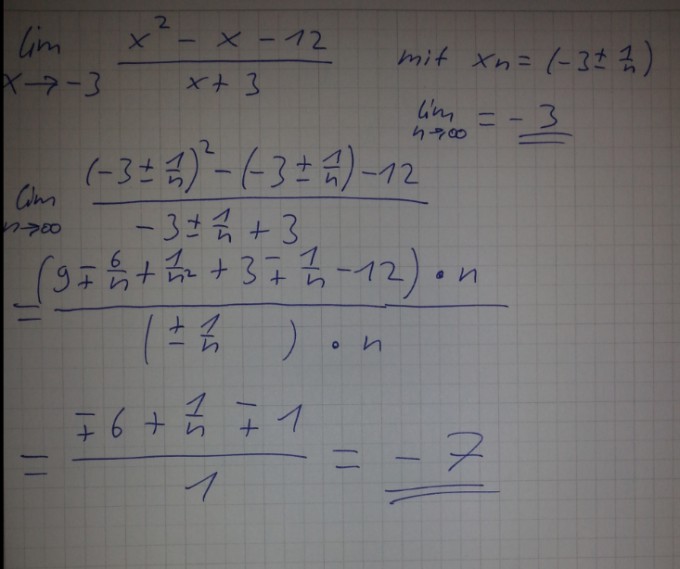 lim x→-3 (x² - x - 12)/(x + 3) mit xn = (-3 ± 1/n)
lim n→∞ = -3
lim n→∞ ((-3 ± 1/n)² - (-3 ± 1/n) - 12)/(-3 ± 1/n + 3)
= ((9 ∓ 6/n + 1/n² + 3 ∓ 1/n - 12) · n)/((± 1/n) · n)
= (∓ 6 + 1/n ∓ 1)/1 = -7